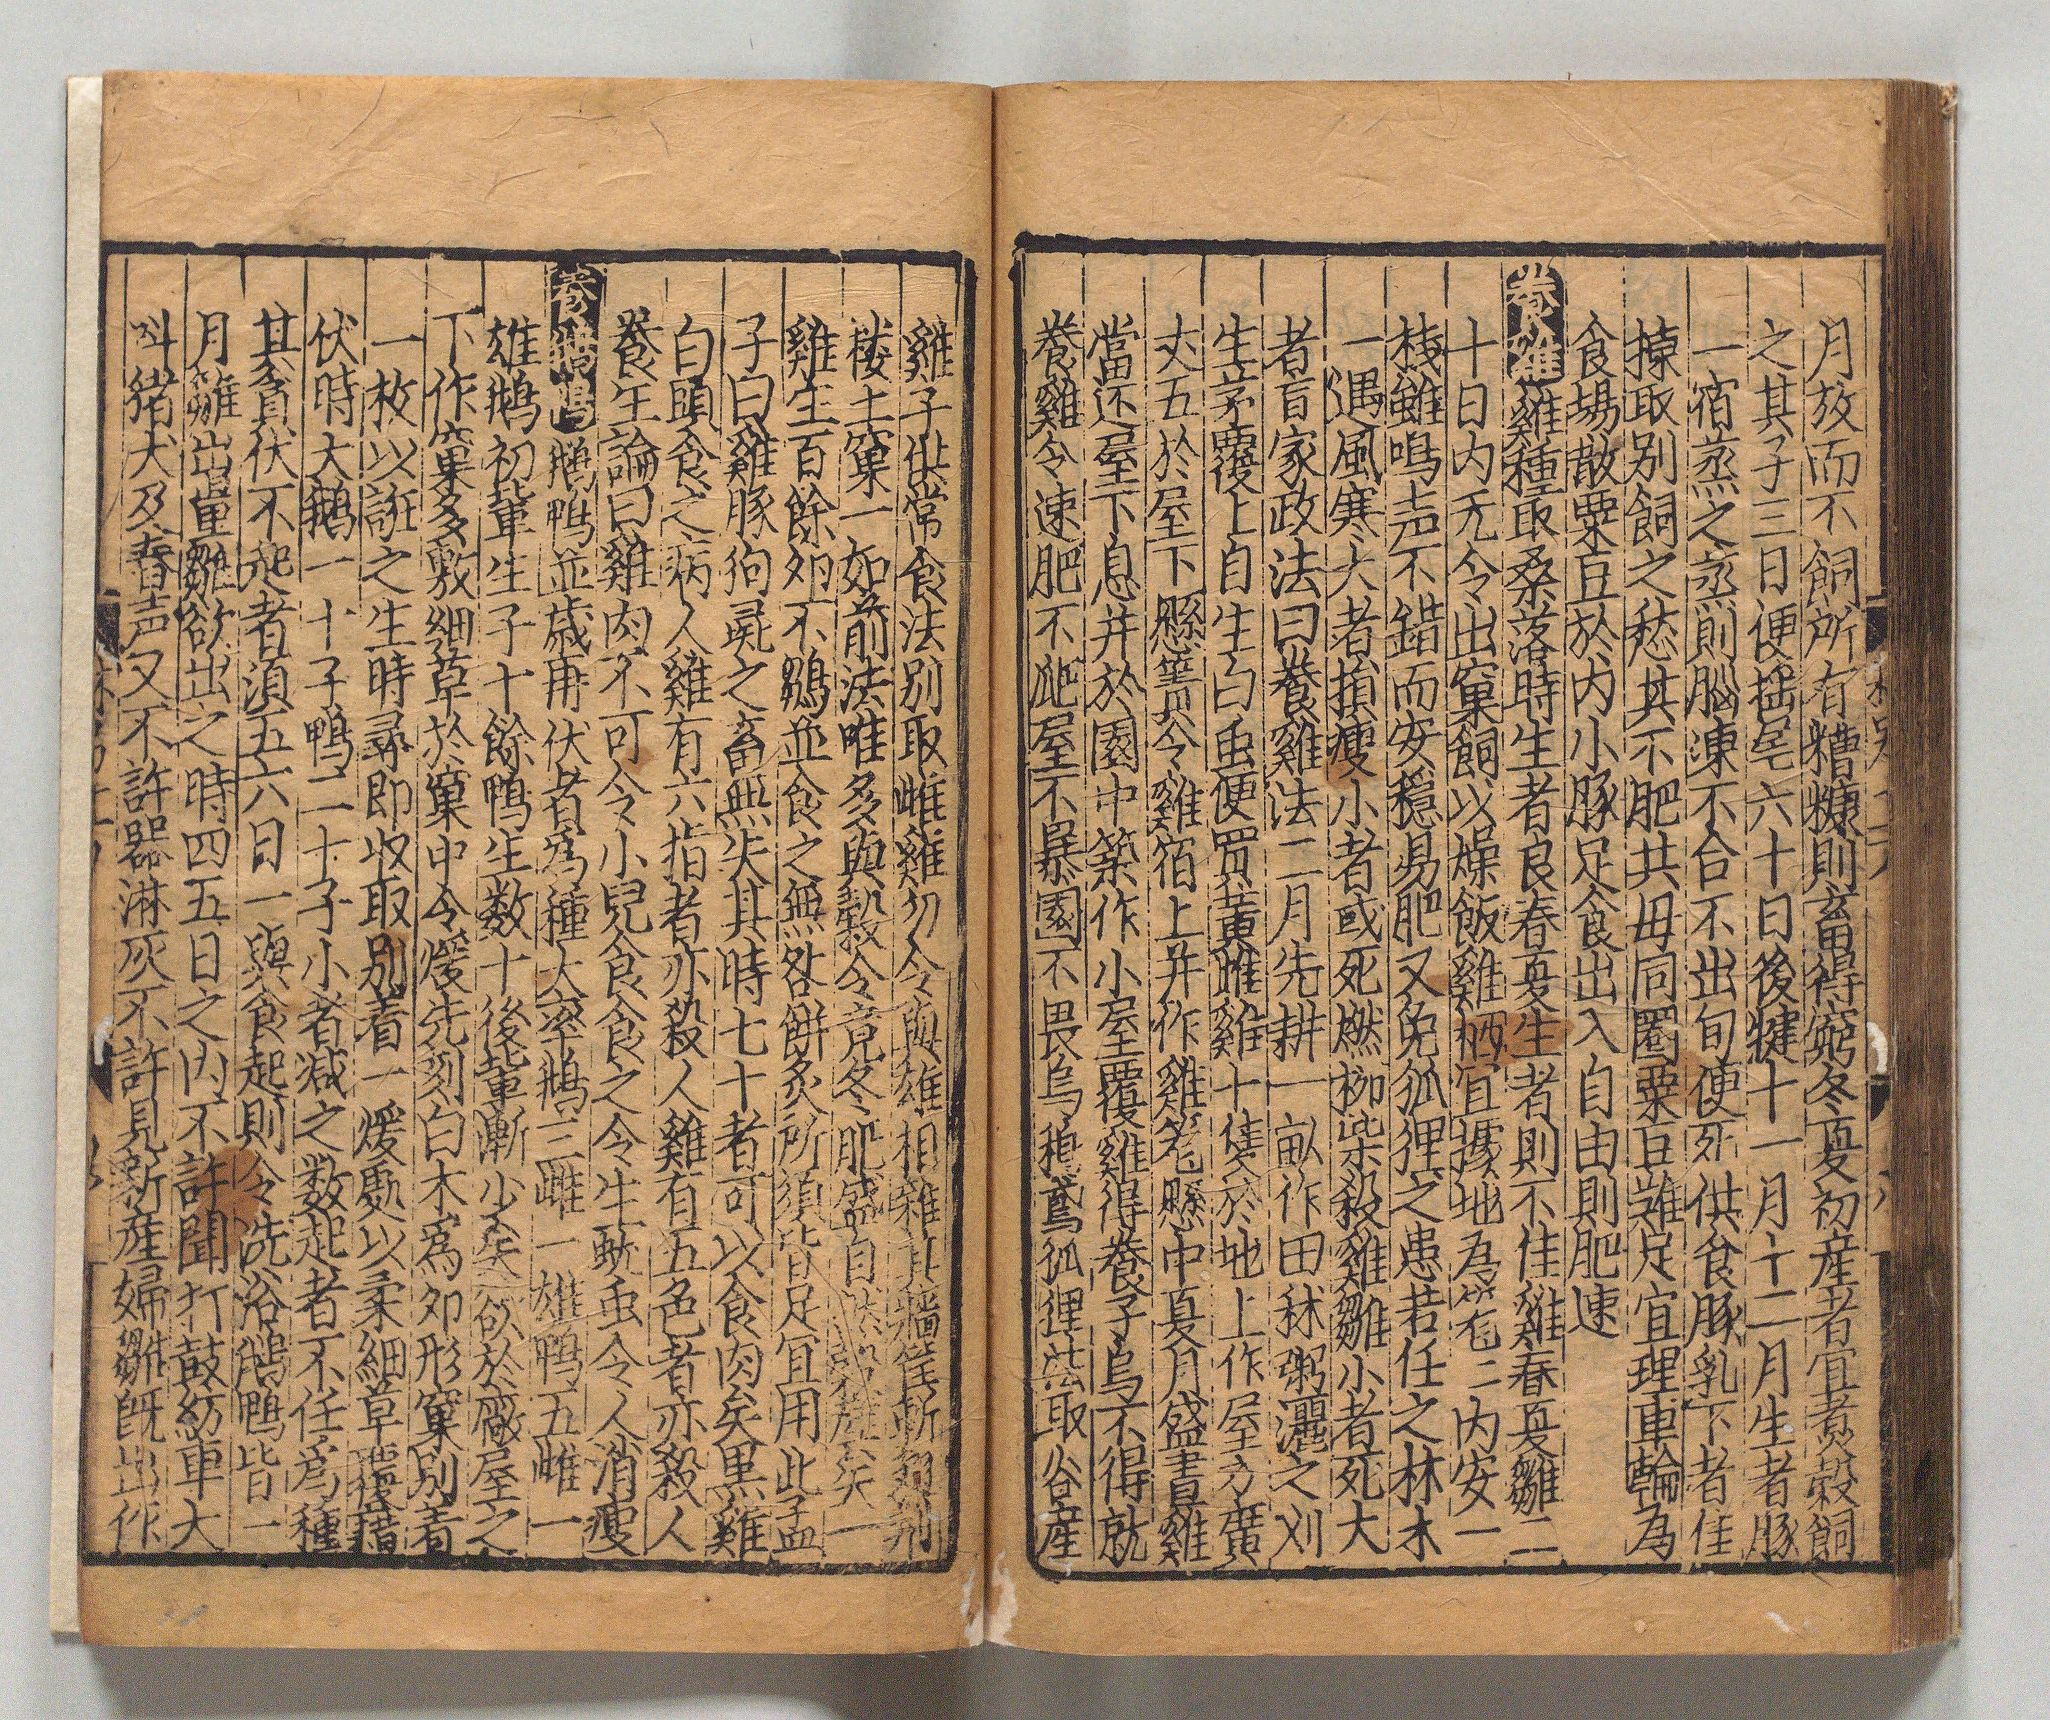 月放而不飼所有糟糠則畜得窮冬夏初産者宜煮穀飼
之其子三日便掐尾六十日後犍十一月十二月生者豚
一宿蒸之蒸則腦凍不合不出旬便死供食豚乳下者佳
揀取別飼之愁其不肥共母同圈粟豆難足宜埋車輪為
食場散粟豆於内小豚足食出入自由則肥速
養雞 雞種取桑落時生者良春夏生者則不佳雞春夏雛二
十日内无令出窠飼以燥飯雞栖宜據地為笼二内安一
棧雖鳴声不錯而安穩易肥又免狐狸之患若任之林木
一遇風寒大者損瘦小者或死燃柳柴殺雞雛小者死大
者盲家政法曰養雞法二月先耕一畝作田秫粥灑之刈
生茅覆上自生白虫便買黄雌雞十隻於地上作屋方廣
丈五於屋下懸簀令雞宿上并作雞笼懸中夏月盛晝雞
當还屋下息并於園中築作小屋覆雞得養子烏不得就
養雞令速肥不爬屋不暴園不畏烏鴉鳶狐狸法取谷産
雞子供常食法別取雌雞勿令與雄相雜其墻斬翅荆
棲土窠一如前法唯多與穀令竟冬肥盛自然穀産矣一
雞生百餘卵不鶵並食之無咎餅炙所須皆足宜用此孟
子曰雞豚狗彘之畜無失其時七十者可以食肉矣黒雞
白頭食之病人雞有六指者亦殺人雞有五色者亦殺人
養生論曰雞肉不可令小兒食食之令生蚘虫令人消瘦
養鵝鴨 鵝鴨並歳再伏者為種大率鵝三雌一雄鴨五雌一
雄鵝初輩生子十餘鴨生数十後輩漸少矣欲於廠屋之
下作窠多敷細草於窠中令煖先刻白木為卵形窠別着
一枚以誑之生時尋即收取別着一煖處以柔細草覆藉
伏時大鵝一十子鴨二十子小者减之数起者不任為種
其貪伏不起者湏五六日一與食起則令洗浴鵝鴨皆一
月雛出量雛欲出之時四五日之内不許聞打鼓紡車大
叫猪犬及舂声又不許器淋灰不許見新産婦雛既出作